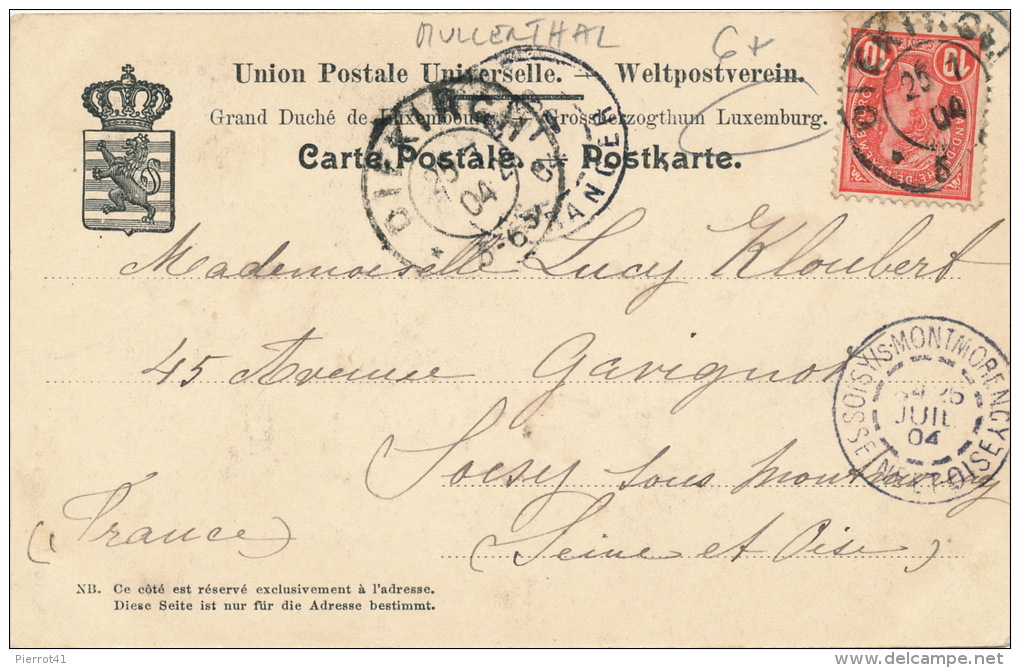 MULLERTHAL
6+
Union Postale Universelle. — Weltpostverein.
Grand Duché de Luxembourg. Grossherzogthum Luxemburg.
Carte Postale. Postkarte.
10 10
25 7
04
DIEKIRCH
25 7
04
5-6S
ANGER
Mademoiselle Lucy Kloubert
45 Avenue Gavignot
Soisy sous Montmorency
(France) Seine et Oise)
SOISY-S-MONTMORENCY
25
JUIL
04
SEINE-ET-OISE
NB. Ce côté est réservé exclusivement à l'adresse.
Diese Seite ist nur für die Adresse bestimmt.
Pierrot41
delcampe.net